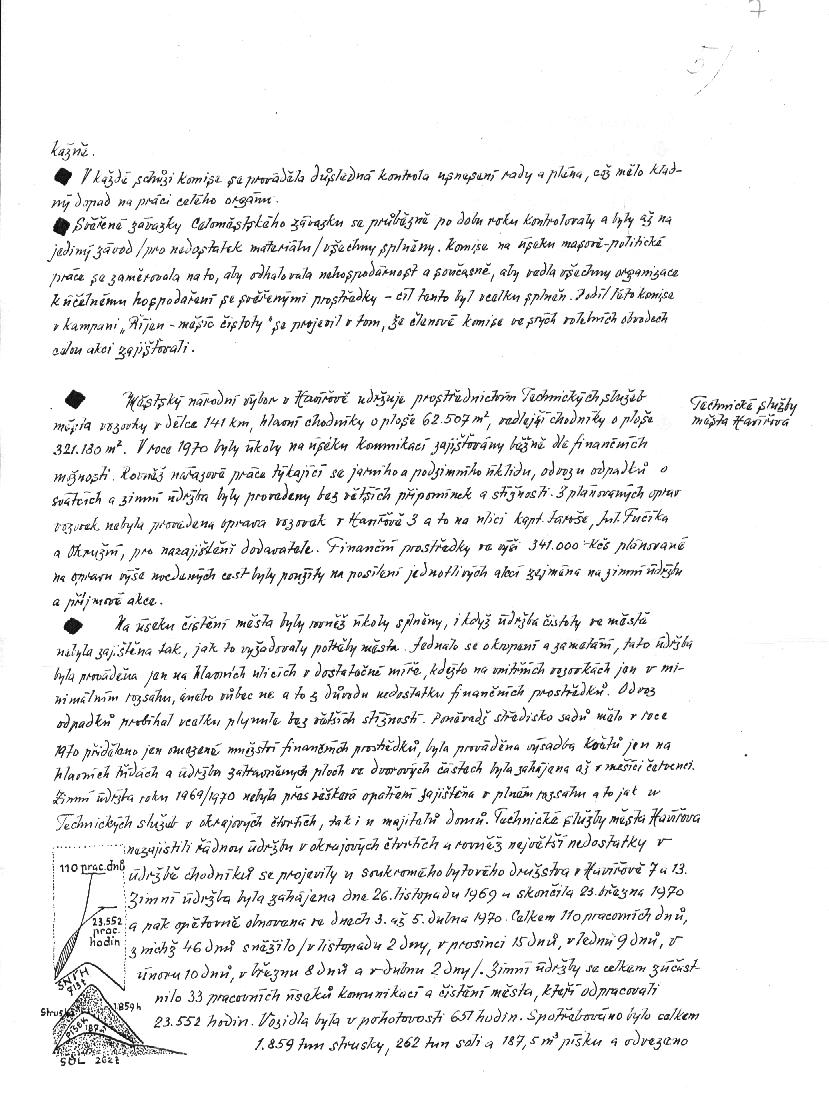 7
5/
kázně.
◆ V každé schůzi komise se prováděla důsledná kontrola usnesení rady a pléna, což mělo klad-
ný dopad na práci celého orgánu.
◆ Svěřené závazky Celoměstského závazku se průběžně po dobu roku kontrolovaly a byly až na
jediný závod /pro nedostatek materiálu/ všechny splněny. Komise na úseku masově-politické
práce se zaměřovala na to, aby odhalovala nehospodárnost a současně, aby vedla všechny organizace
k účelnému hospodaření se svěřenými prostředky - cíl tento byl vcelku splněn. Podíl této komise
v kampani "Říjen - měsíc čistoty" se projevil v tom, že členové komise ve svých volebních obvodech
celou akci zajišťovali.
◆ Městský národní výbor v Havířově udržuje prostřednictvím Technických služeb
města vozovky v délce 141 km, hlavní chodníky o ploše 62.507 m², vedlejší chodníky o ploše
321.130 m². V roce 1970 byly úkoly na úseku komunikací zajišťovány běžně dle finančních
možností. Rovněž nárazové práce týkající se jarního a podzimního úklidu, odvozu odpadků o
svátcích a zimní údržba byly provedeny bez větších připomínek a stížností. Z plánovaných oprav
vozovek nebyla provedena oprava vozovek v Havířově 3 a to na ulici kapt. Jaroše, Jul. Fučíka
a Okružní, pro nezajištění dodavatele. Finanční prostředky ve výši 341.000 Kčs plánované
na opravu výše uvedených cest byly použity na posílení jednotlivých akcí zejména na zimní údržbu
a příjmové akce.
Technické služby
města Havířova
◆ Na úseku čistění města byly rovněž úkoly splněny, i když údržba čistoty ve městě
nebyla zajištěna tak, jak to vyžadovaly potřeby města. Jednalo se o kropení a zametání, tato údržba
byla prováděna jen na hlavních ulicích v dostatečné míře, kdežto na vnitřních vozovkách jen v mi-
nimálním rozsahu, anebo vůbec ne a to z důvodu nedostatku finančních prostředků. Odvoz
odpadků probíhal vcelku plynule bez větších stížností. Poněvadž středisko sadů mělo v roce
1970 přiděleno jen omezené množství finančních prostředků, byla prováděna výsadba květů jen na
hlavních třídách a údržba zatravněných ploch ve dvorových částech byla zahájena až v měsíci červenci.
Zimní údržba roku 1969/1970 nebyla přes veškerá opatření zajištěna v plném rozsahu a to jak u
Technických služeb v okrajových čtvrtích, tak i u majitelů domů. Technické služby města Havířova
nezajistili řádnou údržbu v okrajových čtvrtích a rovněž největší nedostatky v
údržbě chodníků se projevily u soukromého bytového družstva v Havířově 7 a 13.
Zimní údržba byla zahájena dne 26. listopadu 1969 a skončila 23. března 1970
a pak opětovně obnovena ve dnech 3. až 5. dubna 1970. Celkem 110 pracovních dnů,
z nichž 46 dnů sněžilo /v listopadu 2 dny, v prosinci 15 dnů, v lednu 9 dnů, v
únoru 10 dnů, v březnu 8 dnů a v dubnu 2 dny/. Zimní údržby se celkem zúčast-
nilo 33 pracovních úseků komunikací a čistění města, kteří odpracovali
23.552 hodin. Vozidla byla v pohotovosti 651 hodin. Spotřebováno bylo celkem
1.859 tun strusky, 262 tun soli a 187,5 m³ písku a odvezeno
110 prac. dnů
23.552
prac.
hodin
SNÍH
Struska
1859 t
PÍSEK
187,5
SŮL 262 t